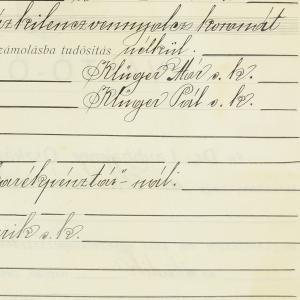 zkilenczvennyolcz koronát
zámolásba tudósítás nélkül.
Klüger Mór s. k.
Klüger Pál s. k.
arékpénztár-nál.
rik s. k.